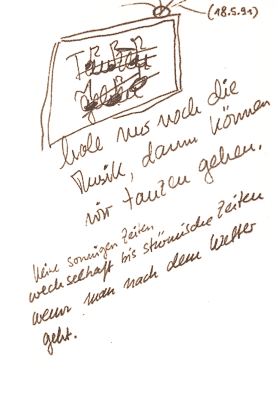 (18.5.91)
hole nur noch die
Musik, dann können
wir tanzen gehen.
keine sonnigen Zeiten
wechselhaft bis stürmische Zeiten
wenn man nach dem Wetter
geht.